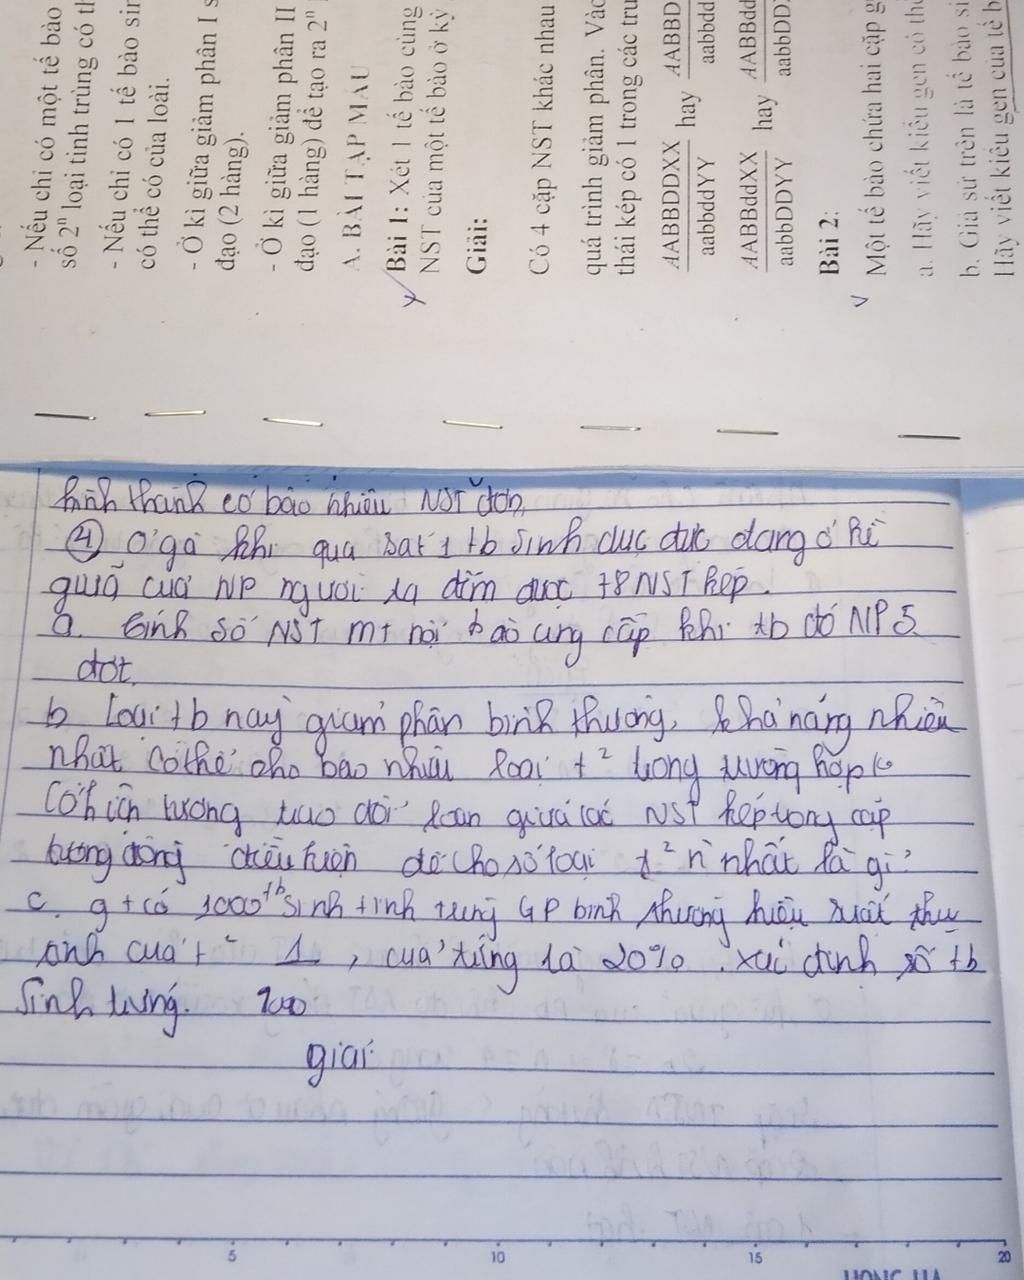 - Nếu chỉ có một tế bào
số 2ⁿ loại tinh trùng có th
- Nếu chỉ có 1 tế bào sin
có thể có của loài.
- Ở kì giữa giảm phân I s
đạo (2 hàng).
- Ở kì giữa giảm phân II
đạo (1 hàng) để tạo ra 2ⁿ
A. BÀI TẬP MẪU
Bài 1: Xét 1 tế bào cùng
NST của một tế bào ở kỳ
Giải:
Có 4 cặp NST khác nhau
quá trình giảm phân. Vào
thái kép có 1 trong các trư
AABBDDXX hay AABBD
aabbddYY aabbdd
AABBddXX hay AABBdd
aabbDDYY aabbDD
Bài 2:
Một tế bào chứa hai cặp g
a. Hãy viết kiểu gen có th
b. Giả sử trên là tế bào si
Hãy viết kiểu gen của tế b
hình thành có bao nhiêu NST đơn,
④ ở gà khi qua sat 1 tb sinh dục đực đang ở kì
giữa của NP người ta đếm được 78 NST kép.
a. tính số NST mt nội bào cung cấp khi tb đó NP 5
đợt.
b loại tb này giảm phân bình thường, khả năng nhiều
nhất có thể cho bao nhiêu loại t² trong trường hợp k
có hiện tượng trao đổi đoạn giữa các NST kép trong cặp
tương đồng điều kiện để cho số loại t² n' nhất là gì?
c. g+ có 1000 tb sinh tinh trùng GP bình thường hiệu suất thụ
tinh của t² 1, của trứng là 20%. xác định số tb
sinh trứng. 1000
giải
5 10 15 20
HONG HA